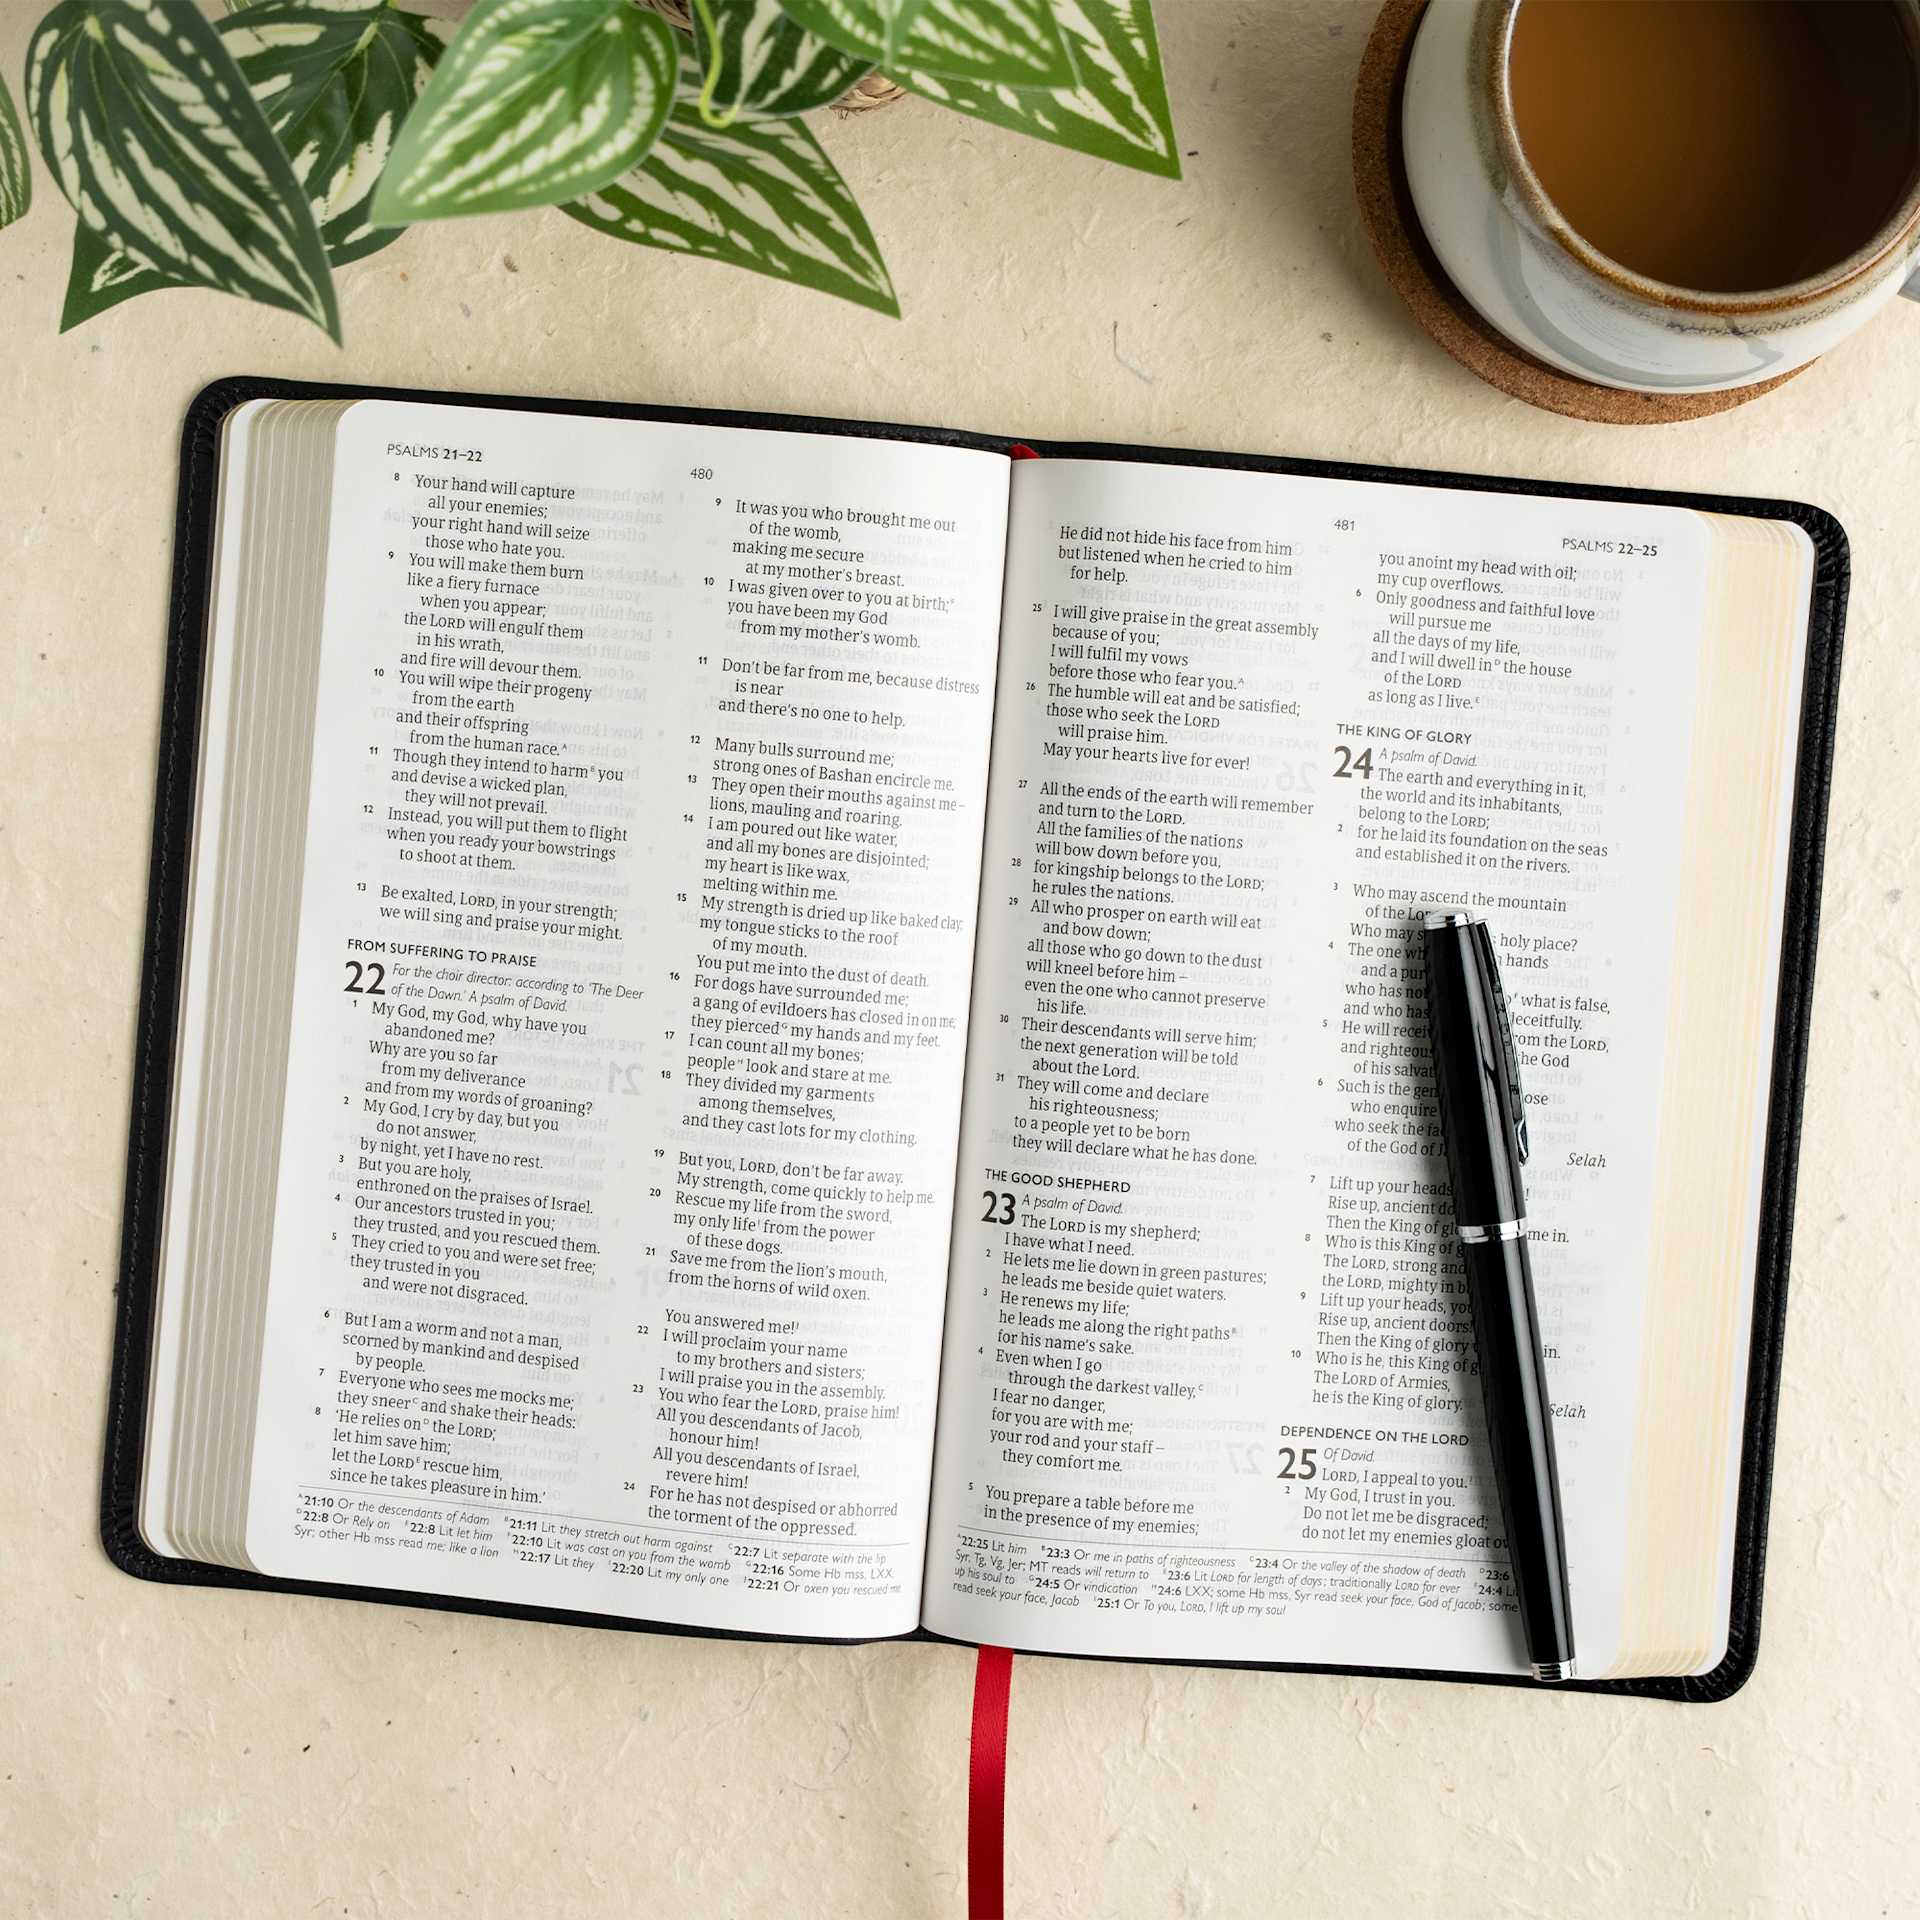 PSALMS 21–22
480
8 Your hand will capture
all your enemies;
your right hand will seize
those who hate you.
9 You will make them burn
like a fiery furnace
when you appear;
the LORD will engulf them
in his wrath,
and fire will devour them.
10 You will wipe their progeny
from the earth
and their offspring
from the human race.ᴬ
11 Though they intend to harmᴮ you
and devise a wicked plan,
they will not prevail.
12 Instead, you will put them to flight
when you ready your bowstrings
to shoot at them.
13 Be exalted, LORD, in your strength;
we will sing and praise your might.
FROM SUFFERING TO PRAISE
22 For the choir director: according to 'The Deer
of the Dawn.' A psalm of David.
1 My God, my God, why have you
abandoned me?
Why are you so far
from my deliverance
and from my words of groaning?
2 My God, I cry by day, but you
do not answer,
by night, yet I have no rest.
3 But you are holy,
enthroned on the praises of Israel.
4 Our ancestors trusted in you;
they trusted, and you rescued them.
5 They cried to you and were set free;
they trusted in you
and were not disgraced.
6 But I am a worm and not a man,
scorned by mankind and despised
by people.
7 Everyone who sees me mocks me;
they sneerᶜ and shake their heads:
8 'He relies onᴰ the LORD;
let him save him;
let the LORDᴱ rescue him,
since he takes pleasure in him.'
9 It was you who brought me out
of the womb,
making me secure
at my mother's breast.
10 I was given over to you at birth;ᶠ
you have been my God
from my mother's womb.
11 Don't be far from me, because distress
is near
and there's no one to help.
12 Many bulls surround me;
strong ones of Bashan encircle me.
13 They open their mouths against me –
lions, mauling and roaring.
14 I am poured out like water,
and all my bones are disjointed;
my heart is like wax,
melting within me.
15 My strength is dried up like baked clay;
my tongue sticks to the roof
of my mouth.
You put me into the dust of death.
16 For dogs have surrounded me;
a gang of evildoers has closed in on me;
they piercedᴳ my hands and my feet.
17 I can count all my bones;
peopleᴴ look and stare at me.
18 They divided my garments
among themselves,
and they cast lots for my clothing.
19 But you, LORD, don't be far away.
My strength, come quickly to help me.
20 Rescue my life from the sword,
my only lifeᴵ from the power
of these dogs.
21 Save me from the lion's mouth,
from the horns of wild oxen.
You answered me!ᴶ
22 I will proclaim your name
to my brothers and sisters;
I will praise you in the assembly.
23 You who fear the LORD, praise him!
All you descendants of Jacob,
honour him!
All you descendants of Israel,
revere him!
24 For he has not despised or abhorred
the torment of the oppressed.
ᴬ21:10 Or the descendants of Adam ᴮ21:11 Lit they stretch out harm against ᶜ22:7 Lit separate with the lip
ᴰ22:8 Or Rely on ᴱ22:8 Lit let him ᶠ22:10 Lit was cast on you from the womb ᴳ22:16 Some Hb mss, LXX,
Syr; other Hb mss read me; like a lion ᴴ22:17 Lit they ᴵ22:20 Lit my only one ᴶ22:21 Or oxen you rescued me
481
PSALMS 22–25
He did not hide his face from him
but listened when he cried to him
for help.
25 I will give praise in the great assembly
because of you;
I will fulfil my vows
before those who fear you.ᴬ
26 The humble will eat and be satisfied;
those who seek the LORD
will praise him.
May your hearts live for ever!
27 All the ends of the earth will remember
and turn to the LORD.
All the families of the nations
will bow down before you,
28 for kingship belongs to the LORD;
he rules the nations.
29 All who prosper on earth will eat
and bow down;
all those who go down to the dust
will kneel before him –
even the one who cannot preserve
his life.
30 Their descendants will serve him;
the next generation will be told
about the Lord.
31 They will come and declare
his righteousness;
to a people yet to be born
they will declare what he has done.
THE GOOD SHEPHERD
23 A psalm of David.
The LORD is my shepherd;
I have what I need.
2 He lets me lie down in green pastures;
he leads me beside quiet waters.
3 He renews my life;
he leads me along the right pathsᴮ
for his name's sake.
4 Even when I go
through the darkest valley,ᶜ
I fear no danger,
for you are with me;
your rod and your staff –
they comfort me.
5 You prepare a table before me
in the presence of my enemies;
you anoint my head with oil;
my cup overflows.
6 Only goodness and faithful love
will pursue me
all the days of my life,
and I will dwell inᴰ the house
of the LORD
as long as I live.ᴱ
THE KING OF GLORY
24 A psalm of David.
The earth and everything in it,
the world and its inhabitants,
belong to the LORD;
2 for he laid its foundation on the seas
and established it on the rivers.
3 Who may ascend the mountain
of the
Who may holy place?
4 The one hands
and a
who has not what is false,
and who has deceitfully.
5 He will from the LORD,
and the God
of his
6 Such is the
who enquire
who seek the
of the God of Selah
7 Lift up your heads
Rise up, ancient
Then the King of in.
8 Who is this King of
The LORD, strong and
the LORD, mighty in
9 Lift up your heads,
Rise up, ancient doors!
Then the King of glory in.
10 Who is he, this King of
The LORD of Armies,
he is the King of glory. Selah
DEPENDENCE ON THE LORD
25 Of David.
LORD, I appeal to you.ᴵ
2 My God, I trust in you.
Do not let me be disgraced;
do not let my enemies gloat
ᴬ22:25 Lit him ᴮ23:3 Or me in paths of righteousness ᶜ23:4 Or the valley of the shadow of death ᴰ23:6
Syr, Tg, Vg, Jer; MT reads will return to ᴱ23:6 Lit LORD for length of days; traditionally LORD for ever ᶠ24:4
up his soul to ᴳ24:5 Or vindication ᴴ24:6 LXX; some Hb mss, Syr read seek your face, God of Jacob; some
read seek your face, Jacob ᴵ25:1 Or To you, LORD, I lift up my soul